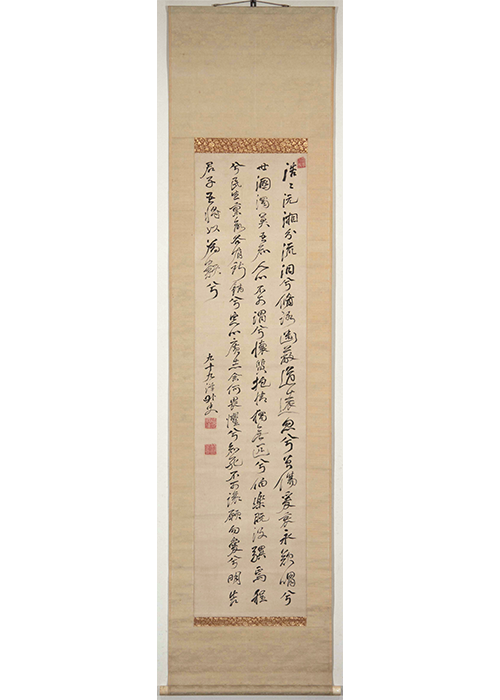 浩〻沅湘分流汩兮脩路幽蔽道遠忽兮曾傷爰哀永歎喟兮
世溷濁莫吾知人心不可謂兮懷質抱情獨無匹兮伯樂既沒驥焉程
兮民生稟命各有所錯兮定心廣志余何畏懼兮知死不可讓願勿愛兮明告
君子吾將以為類兮
九十九洋外史